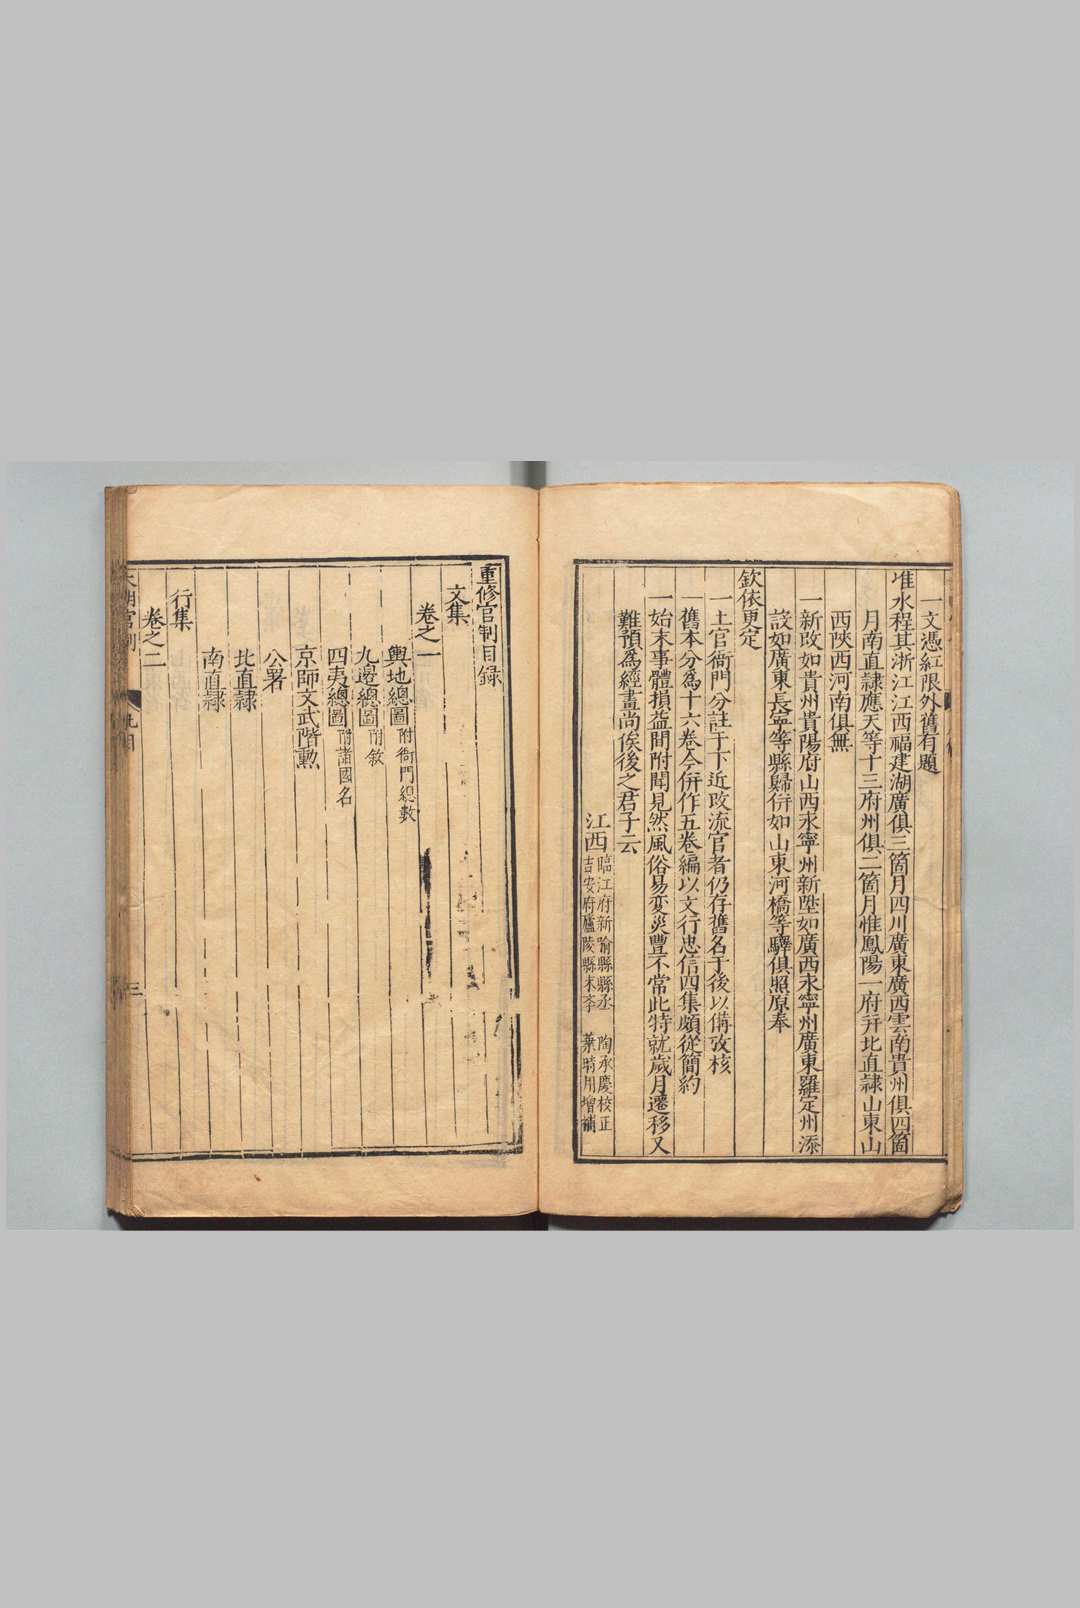 一文憑紅限外舊有題
准水程其浙江江西福建湖廣俱三箇月四川廣東廣西雲南貴州俱四箇
月南直隷應天等十三府州俱二箇月惟鳳陽一府并北直隷山東山
西陜西河南俱無
一新改如貴州貴陽府山西永寧州新陞如廣西永寧州廣東羅定州添
設如廣東長寧等縣歸併如山東河橋等驛俱照原奉
欽依更定
一土官衙門分註于下近改流官者仍存舊名于後以備攷核
一舊本分為十六卷今併作五卷編以文行忠信四集頗從簡約
一始末事體損益間附聞見然風俗易変災豐不常此特就歲月遷移又
難預為經畫尚俟後之君子云
江西
臨江府新喻縣縣丞 陶承慶校正
吉安府廬陵縣末李 葉時用增補
重修官制目録
文集
卷之一
輿地總圖 附衙門總數
九邊總圖 附敘
四夷總圖 附諸國名
京師文武階勲
公署
北直隷
南直隷
行集
卷之二
大明官制
三